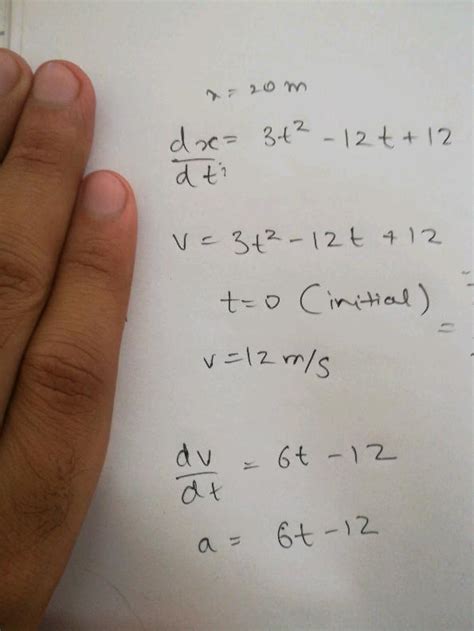 x = 20 m
dx/dt = 3t² - 12t + 12
v = 3t² - 12t + 12
t = 0 (initial)
v = 12 m/s
dv/dt = 6t - 12
a = 6t - 12